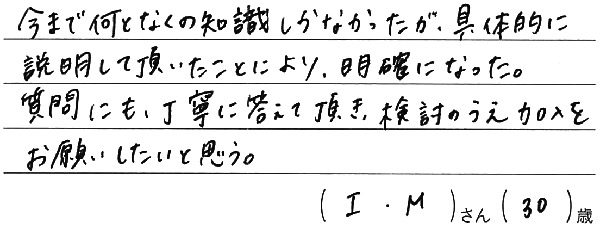 今まで何となくの知識しかなかったが、具体的に
説明して頂いたことにより、明確になった。
質問にも、丁寧に答えて頂き、検討のうえ加入を
お願いしたいと思う。
(I・M)さん(30)歳